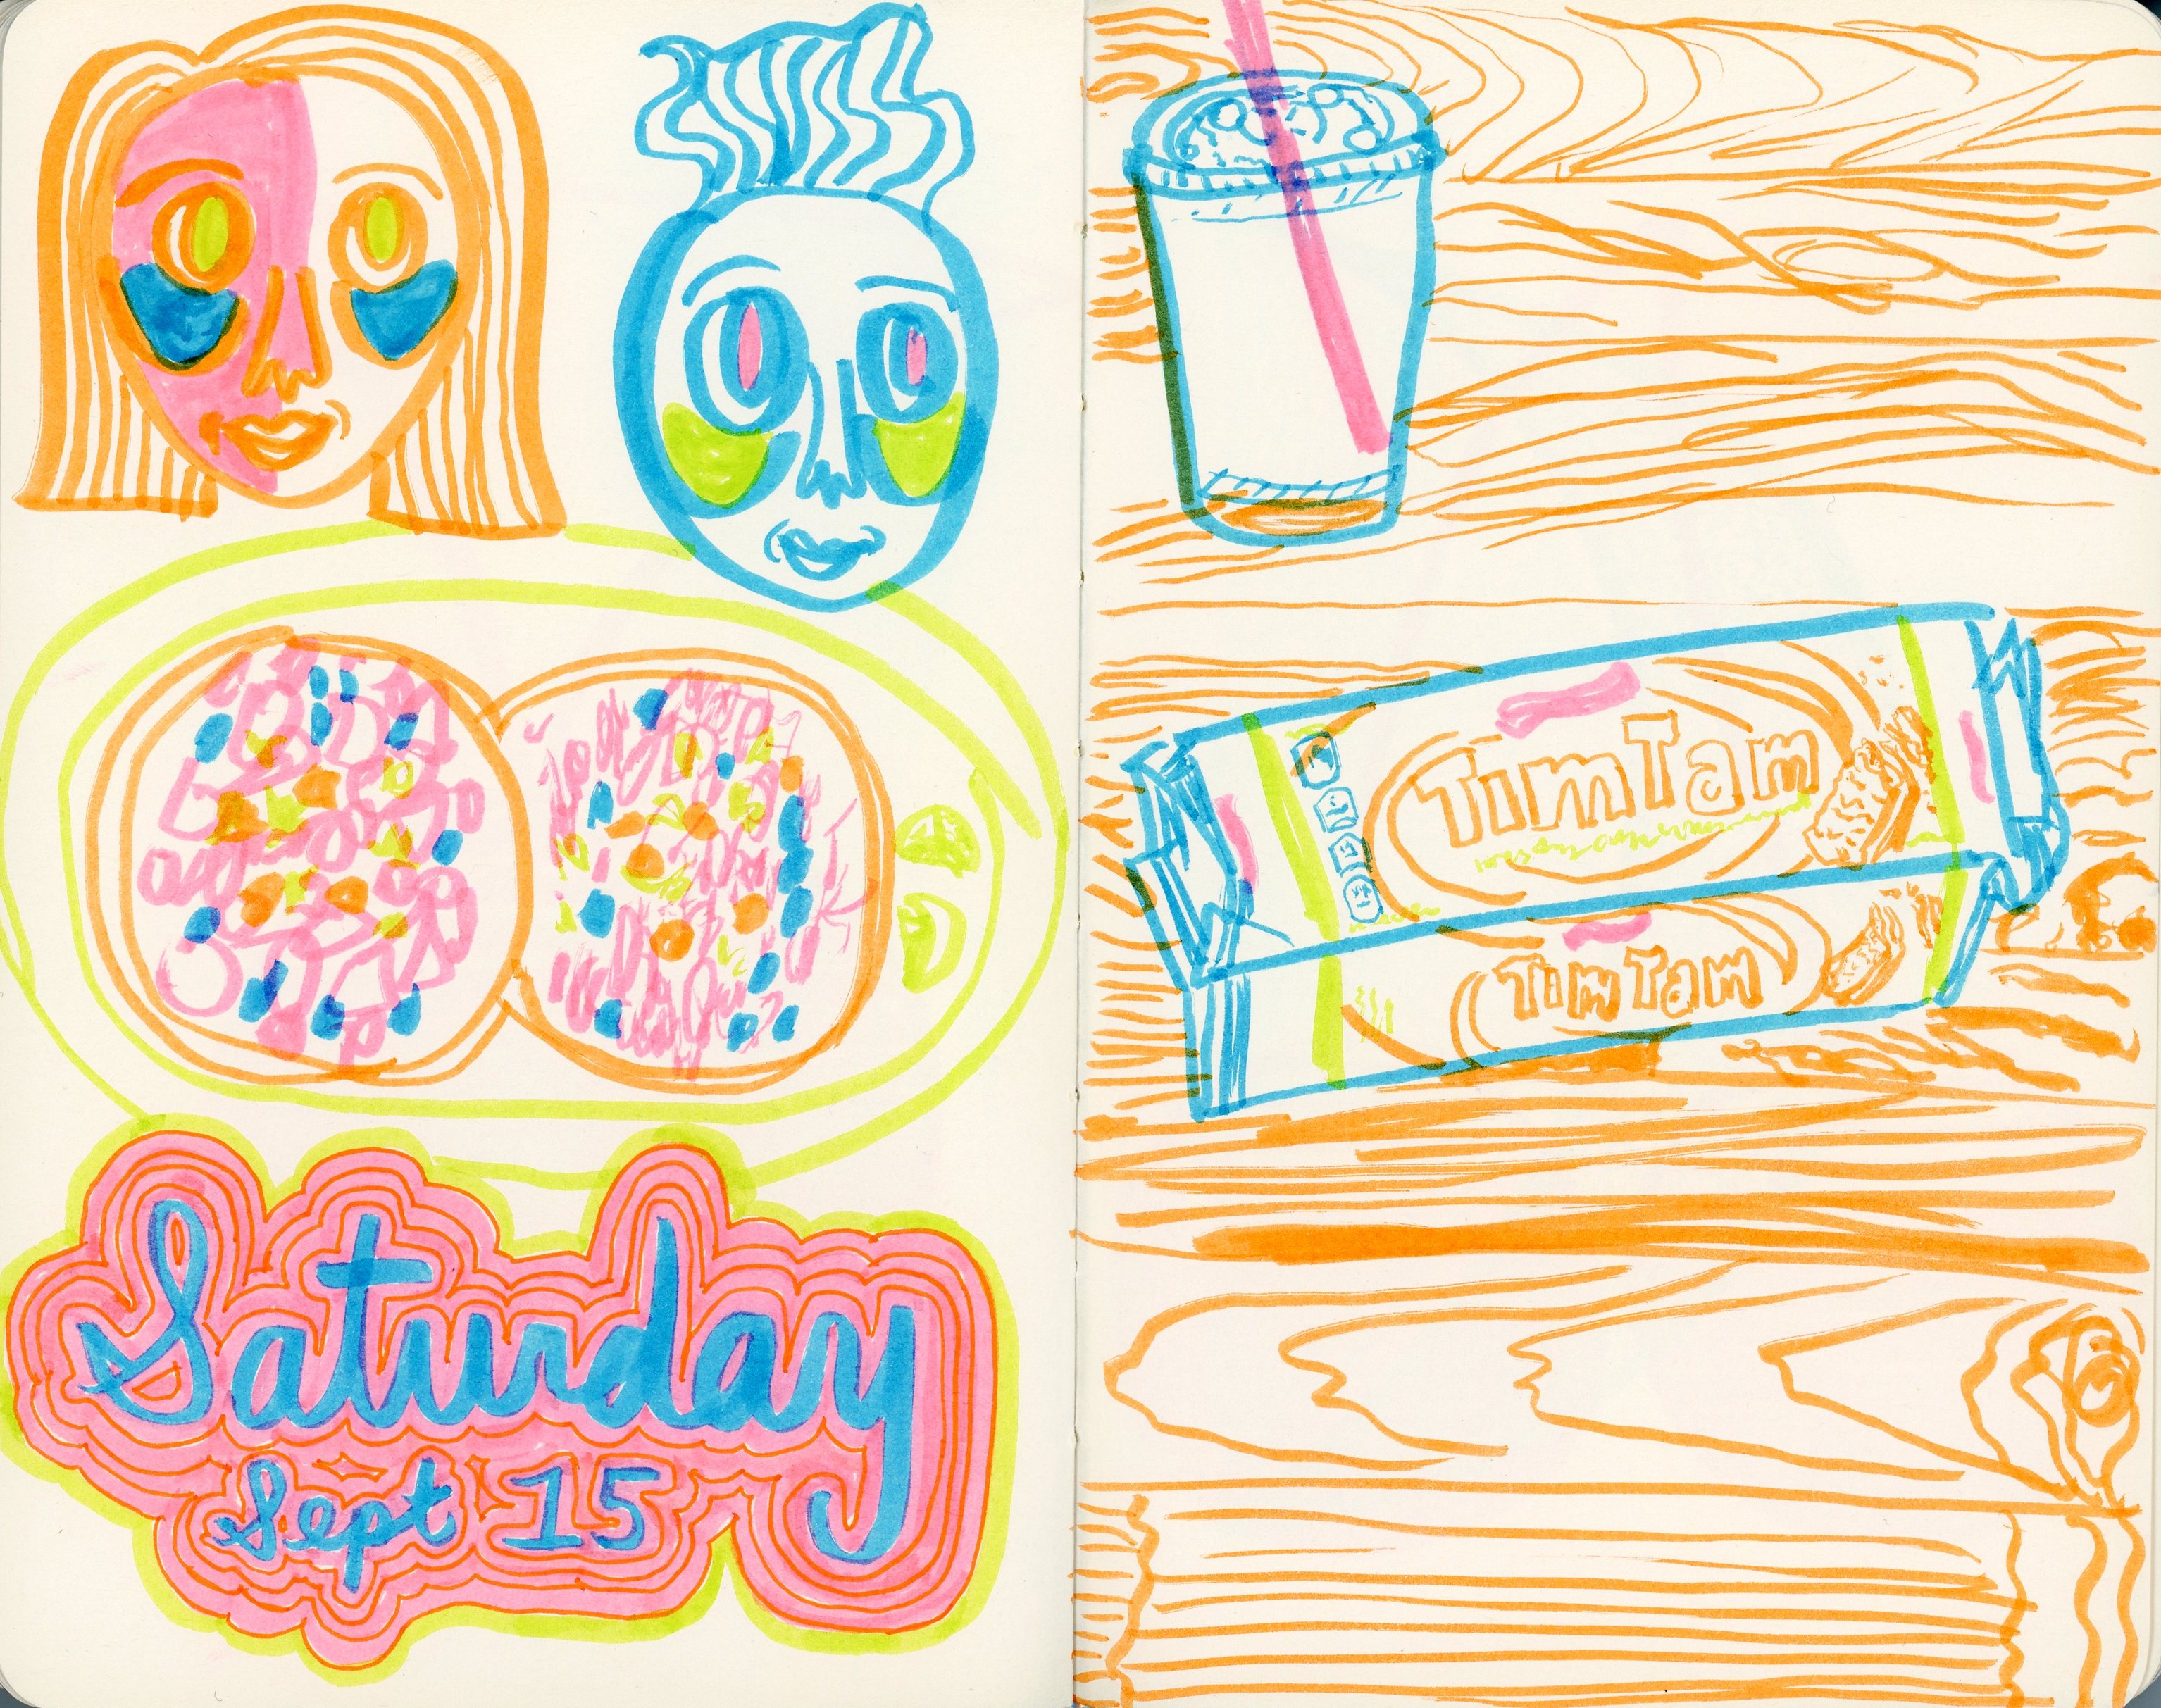 Saturday
Sept 15
TimTam
TimTam